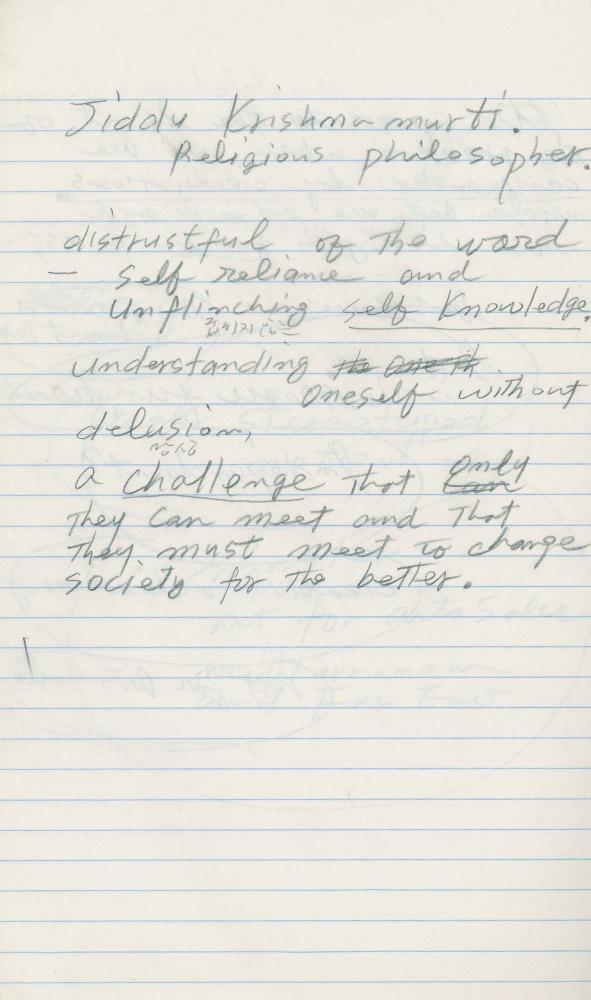 Jiddu Krishnamurti.
Religious philosopher.
distrustful of the word
— self reliance and
unflinching self knowledge.
understanding the one th
oneself without
delusion,
망상
a challenge that can only
they can meet and that
they must meet to change
society for the better.